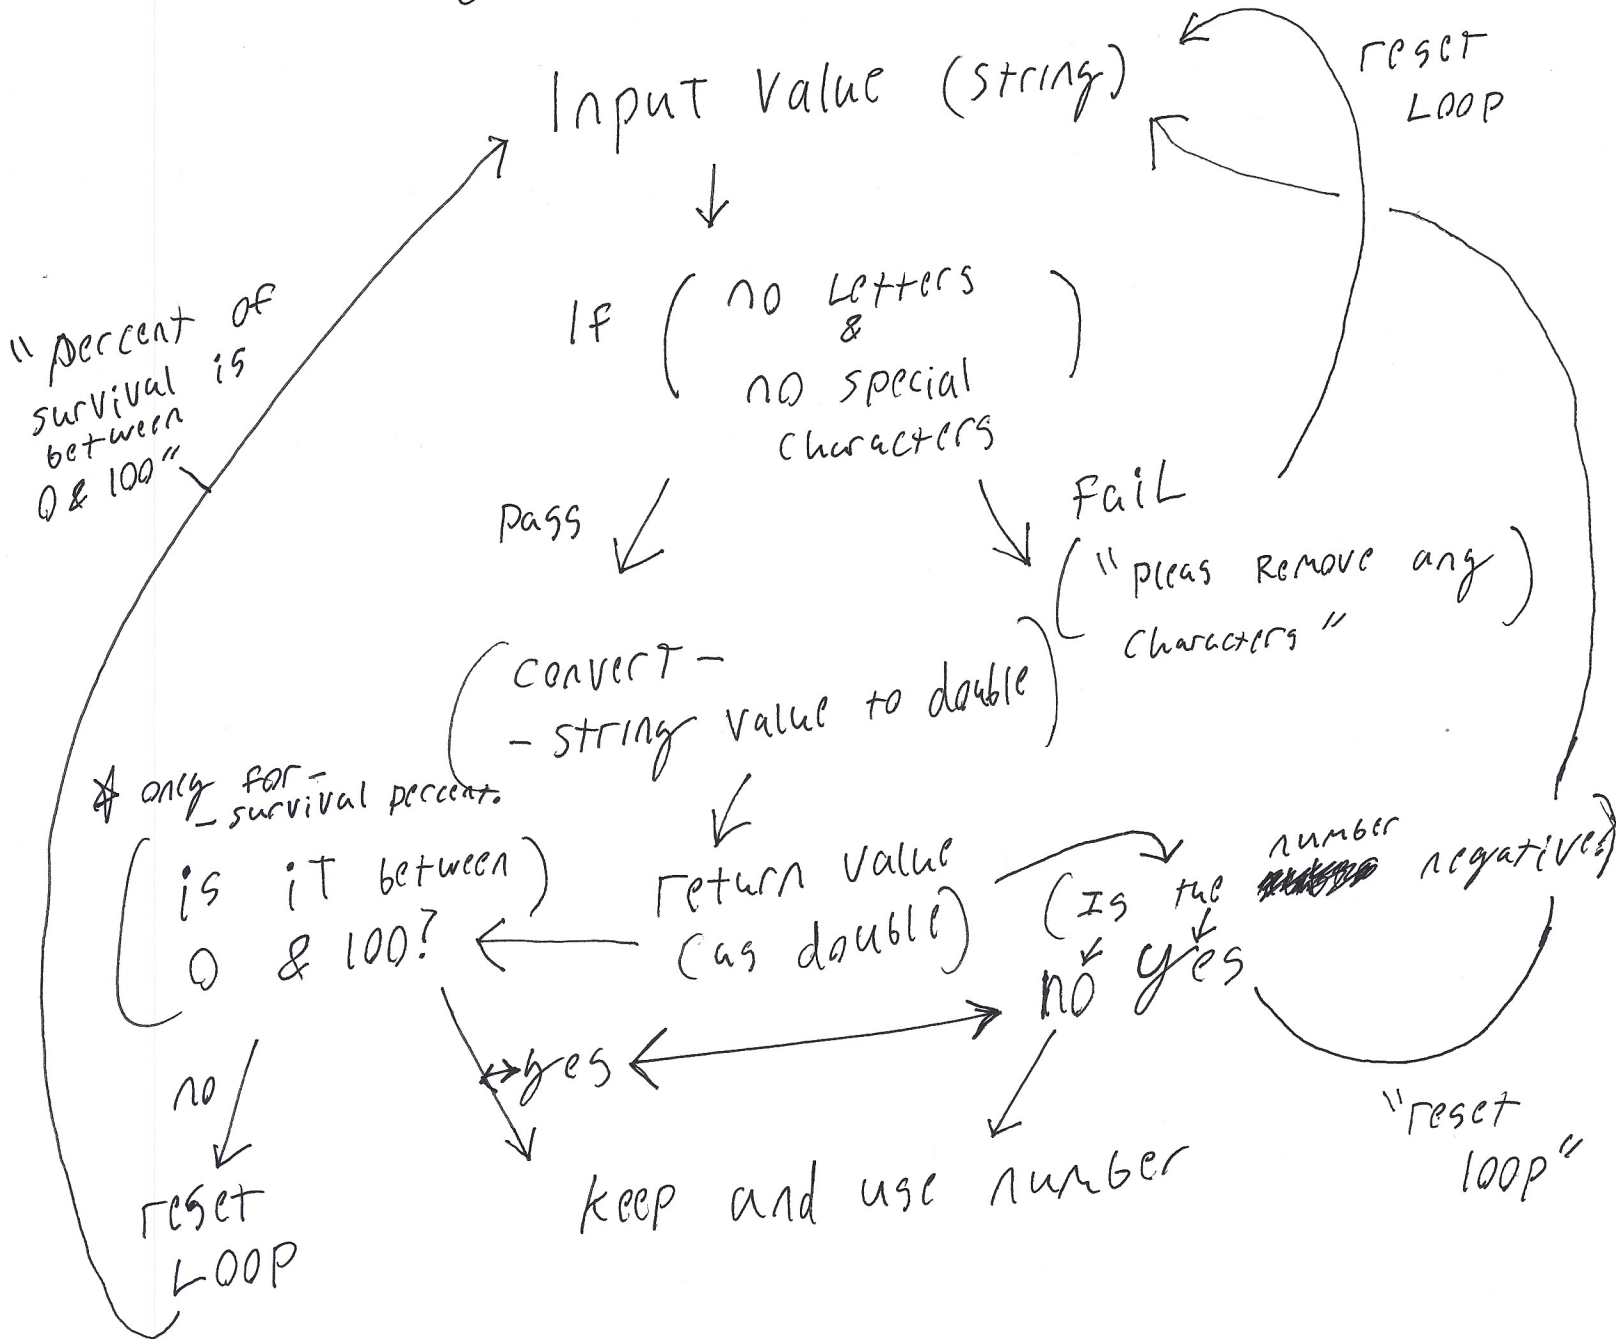 Input Value (string)
reset
LOOP
If ( no Letters
&
no special
characters )
"percent of
survival is
between
0 & 100"
pass
Fail
("pleas Remove any
characters")
(convert -
- string value to double)
* only for -
- survival percent.
(is it between)
0 & 100?
return value
(as double)
(Is the number negative?)
no yes
yes
no
reset
LOOP
keep and use number
"reset
loop"